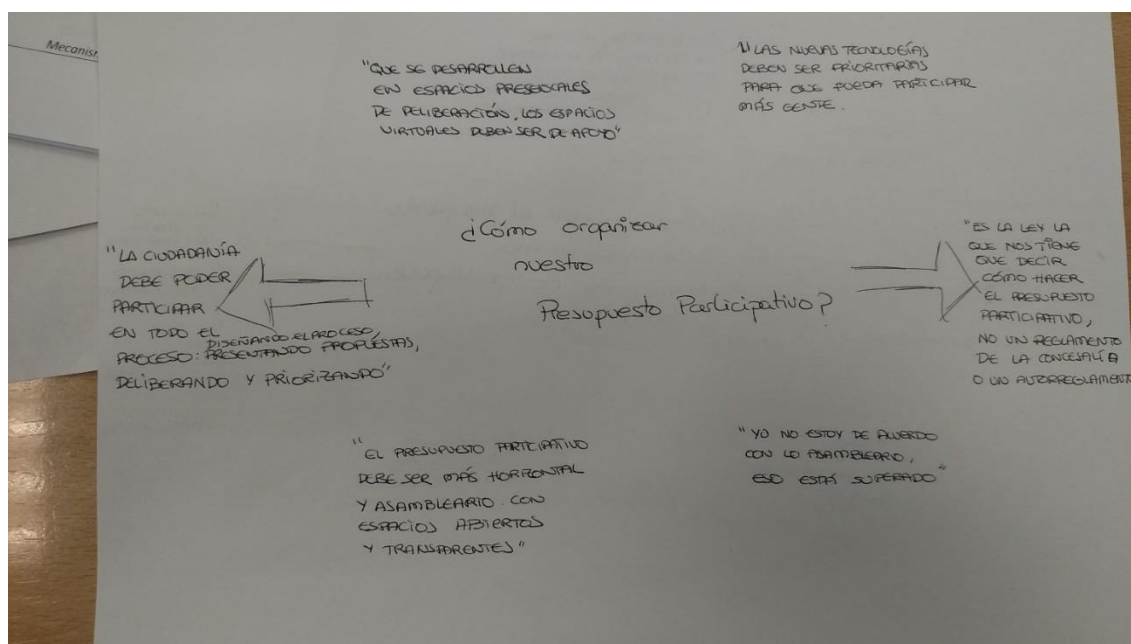 Mecanis
"QUE SE DESARROLLEN
EN ESPACIOS PRESENCIALES
DE DELIBERACIÓN, LOS ESPACIOS
VIRTUALES DEBEN SER DE APOYO"
"LAS NUEVAS TECNOLOGÍAS
DEBEN SER PRIORITARIAS
PARA QUE PUEDA PARTICIPAR
MÁS GENTE.
¿Cómo organizar
nuestro
Presupuesto Participativo?
"LA CIUDADANÍA
DEBE PODER
PARTICIPAR
EN TODO EL
DISEÑANDO EL PROCESO,
PROCESO: PRESENTANDO PROPUESTAS,
DELIBERANDO Y PRIORIZANDO"
"ES LA LEY LA
QUE NOS TIENE
QUE DECIR
CÓMO HACER
EL PRESUPUESTO
PARTICIPATIVO,
NO UN REGLAMENTO
DE LA CONCEJALÍA
O UN AUTORREGLAMENTO
"EL PRESUPUESTO PARTICIPATIVO
DEBE SER MÁS HORIZONTAL
Y ASAMBLEARIO. CON
ESPACIOS ABIERTOS
Y TRANSPARENTES"
"YO NO ESTOY DE ACUERDO
CON LO ASAMBLEARIO,
ESO ESTÁ SUPERADO"